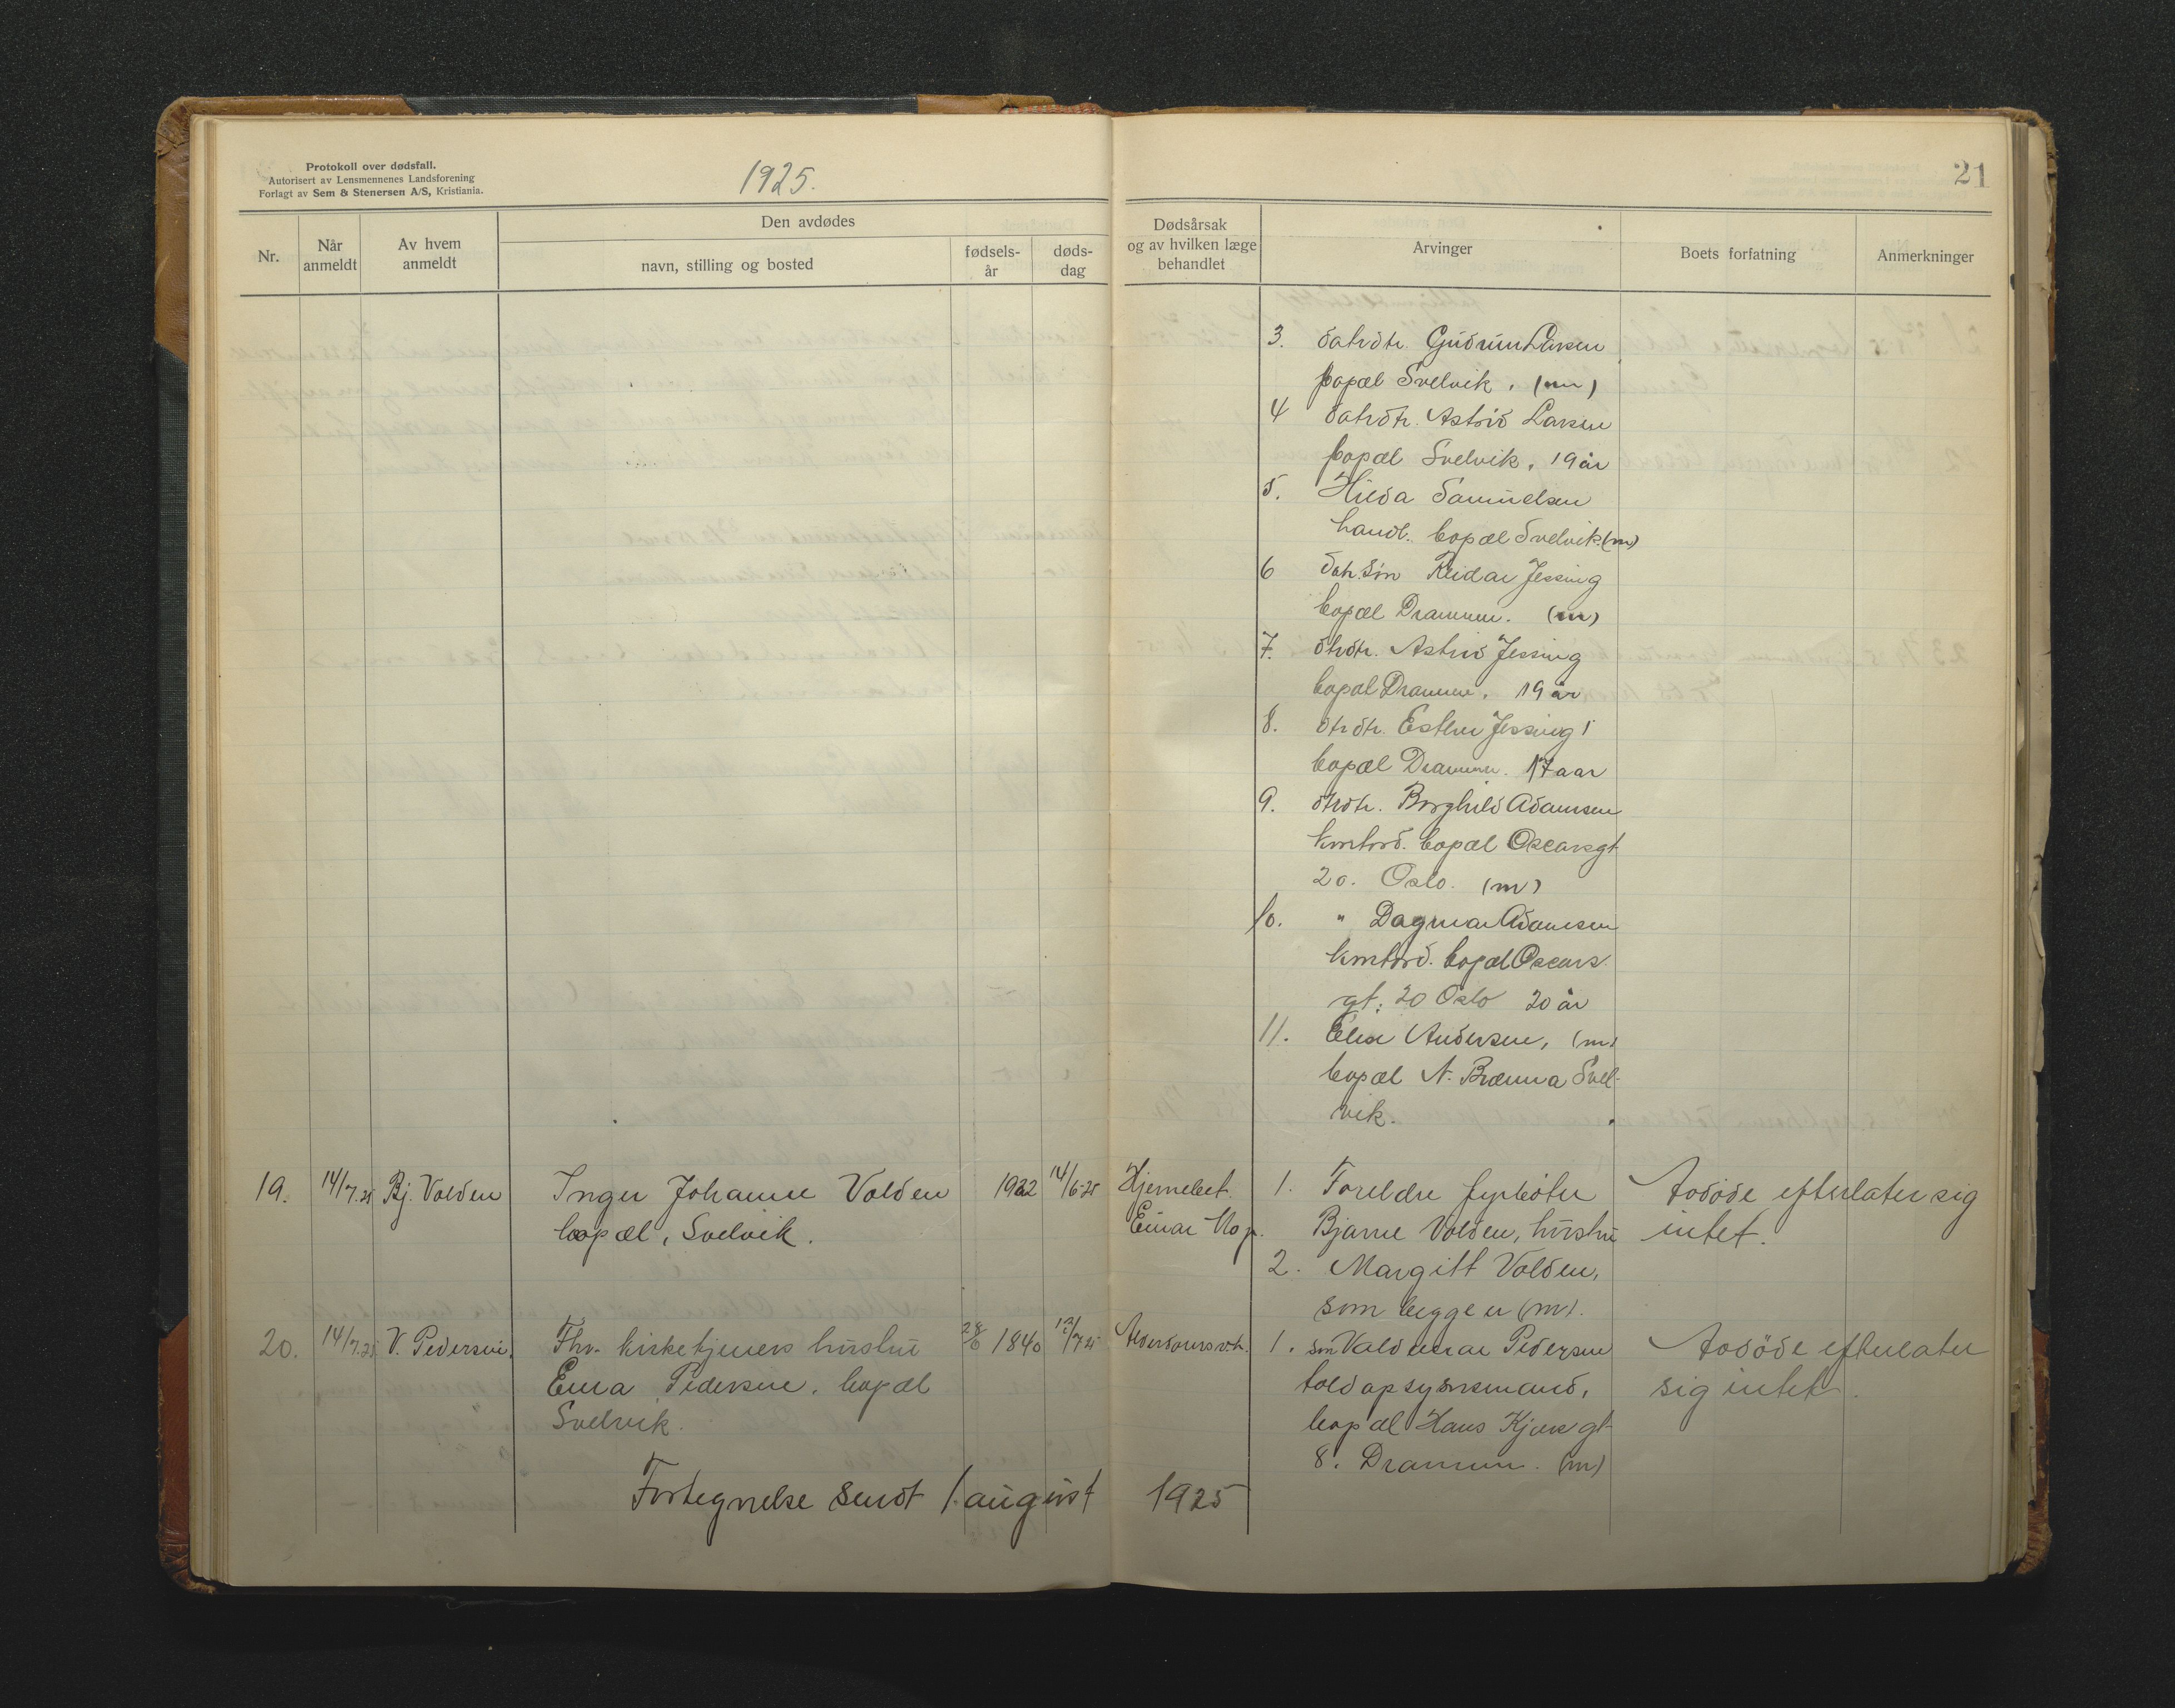 Protokoll over dødsfall.
Autorisert av Lensmennenes Landsforening
Forlagt av Sem & Stenersen A/S, Kristiania.
1925.
21
Nr.
Når anmeldt
Av hvem anmeldt
Den avdødes
navn, stilling og bosted
fødsels-år
døds-dag
Dødsårsak
og av hvilken læge
behandlet
Arvinger
Boets forfatning
Anmerkninger
3. datrdtr. Gudrun Larsen
bopæl Svelvik. (m)
4 datrdtr. Astrid Larsen
bopæl Svelvik. 19 år
5. Hilda Samuelsen
handl. bopæl Svelvik (m)
6 datr.søn Reidar Jessing
bopæl Drammen. (m)
7. dtrdtr. Astrid Jessing
bopæl Drammen. 19 år
8. dtrdtr. Esther Jessing
bopæl Drammen. 17 aar
9. dtrdtr. Borghild Adamsen
kontord. bopæl Oscarsgt
20. Oslo. (m)
10. " Dagmar Adamsen
kontord. bopæl Oscars
gt. 20 Oslo 20 år
11. Elise Andersen, (m)
bopæl N. Brenna Svel-
vik.
19. 14/7.25 Bj. Volden Inger Johanne Volden 1922 14/6-25 Hjernebet. 1. Foreldre fyrbøter Avdöde efterlater sig
bopæl, Svelvik. Einar Bjarne Volden, hustru intet.
2. Margitt Volden,
som begge er (m).
20. 14/7.25 V. Pedersen. Fhv. kirketjeners hustru 1840 12/7 25 Alderdomssvk. 1. søn Valdemar Pedersen Avdöde efterlater
Emma Pedersen. bopæl toldopsynsmand, sig intet.
Svelvik. bopæl Hans Kjærs gt
8. Drammen. (m)
Fortegnelse sendt 1. august 1925